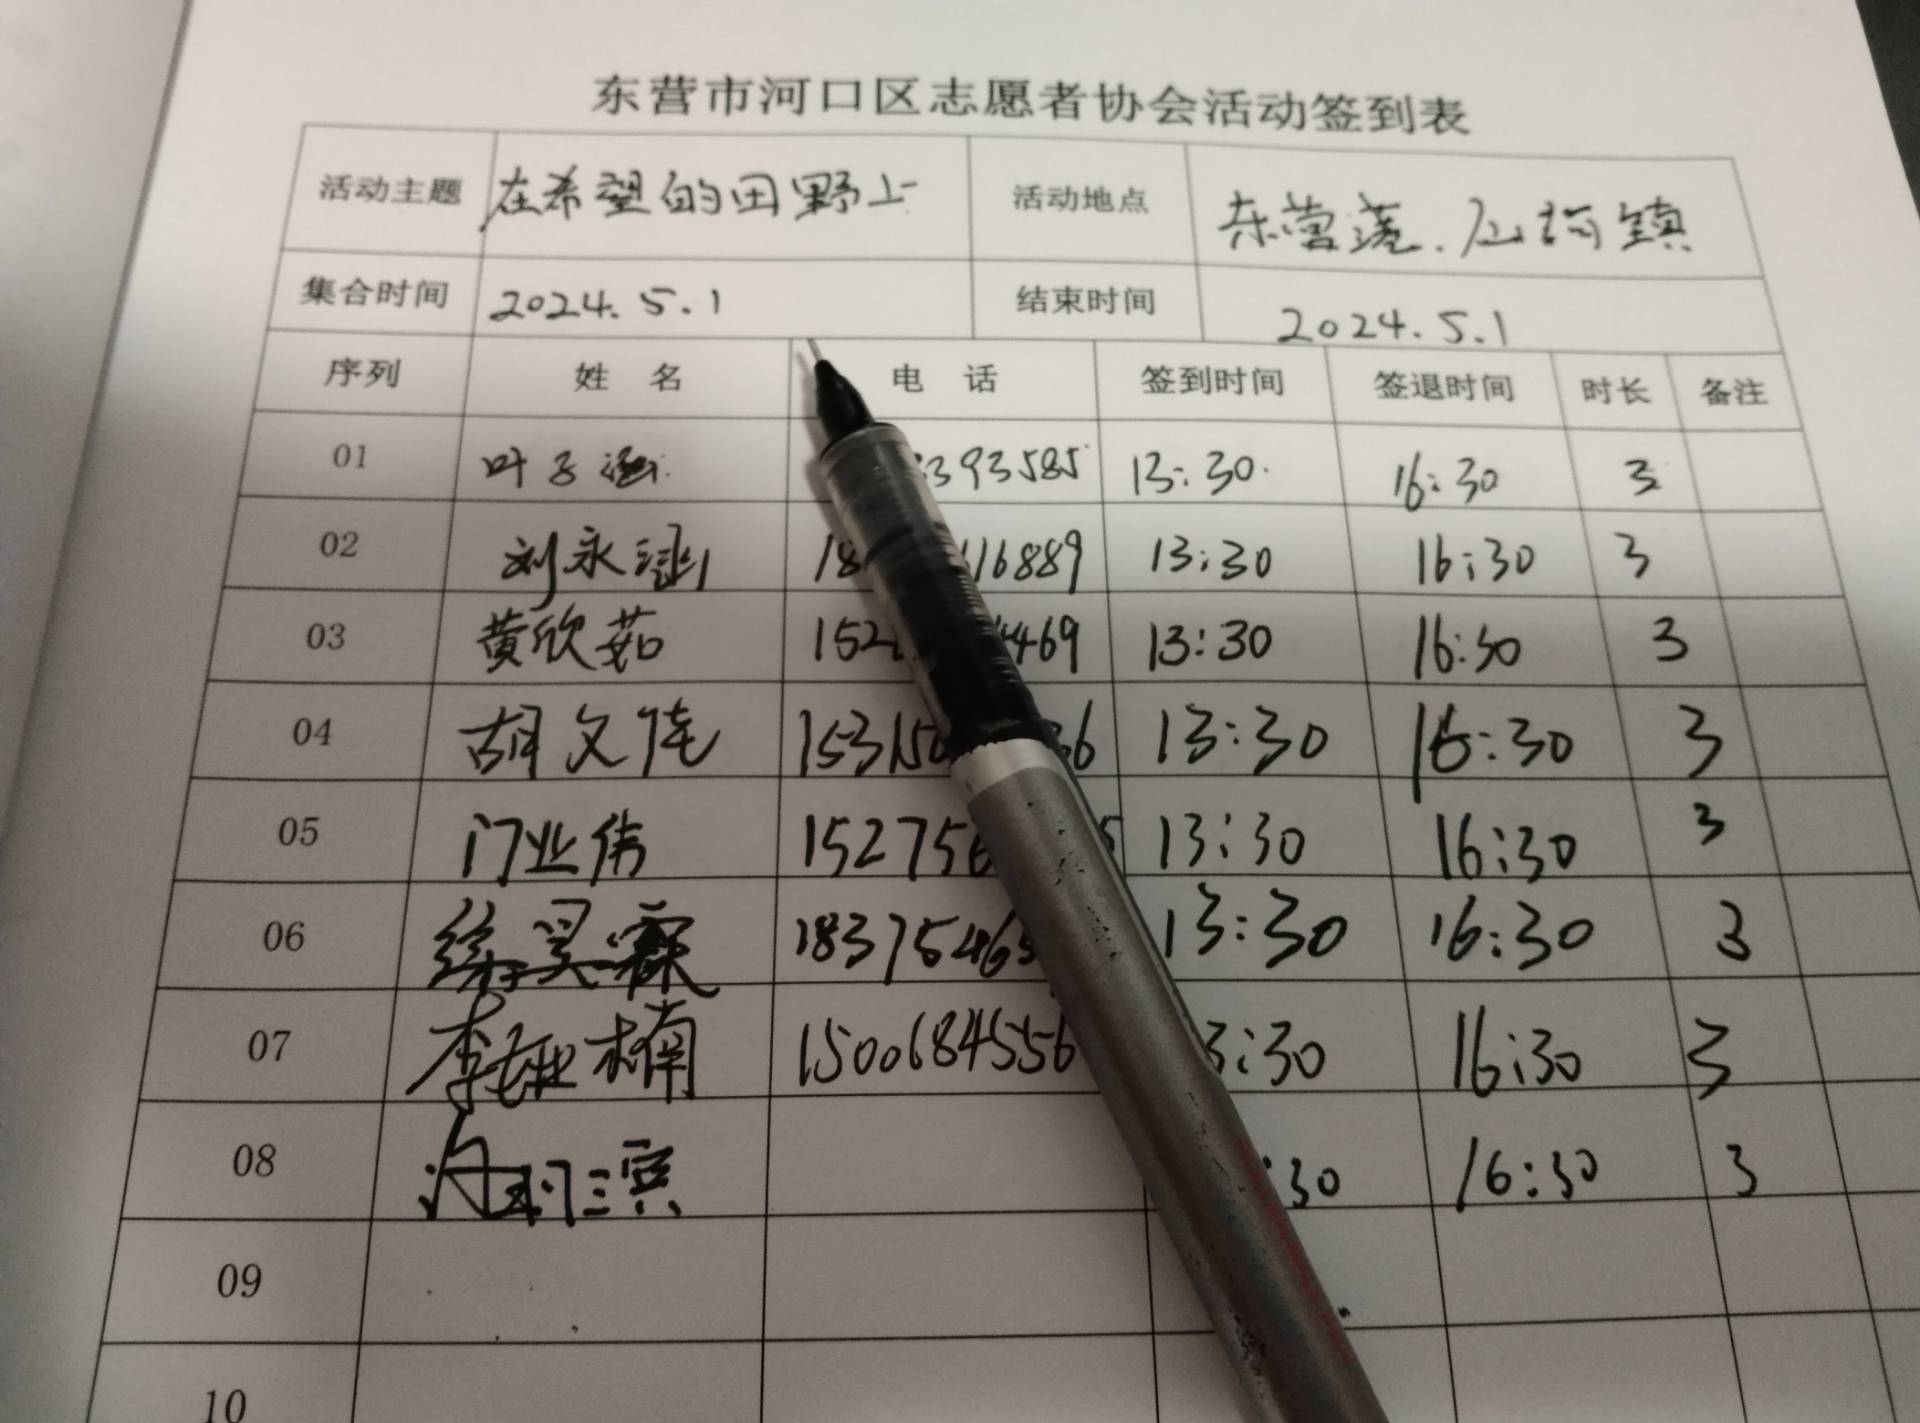 东营市河口区志愿者协会活动签到表
活动主题 在希望的田野上 活动地点 东营 镇
集合时间 2024.5.1 结束时间 2024.5.1
序列 姓 名 电 话 签到时间 签退时间 时长 备注
01 叶子涵 393585 13:30 16:30 3
02 刘永涵 18 16889 13:30 16:30 3
03 黄欣茹 152 469 13:30 16:30 3
04 胡文倩 15315 36 13:30 16:30 3
05 门业伟 152756 5 13:30 16:30 3
06 昊霖 18375465 13:30 16:30 3
07 李 楠 1500684556 3:30 16:30 3
08 :30 16:30 3
09
10